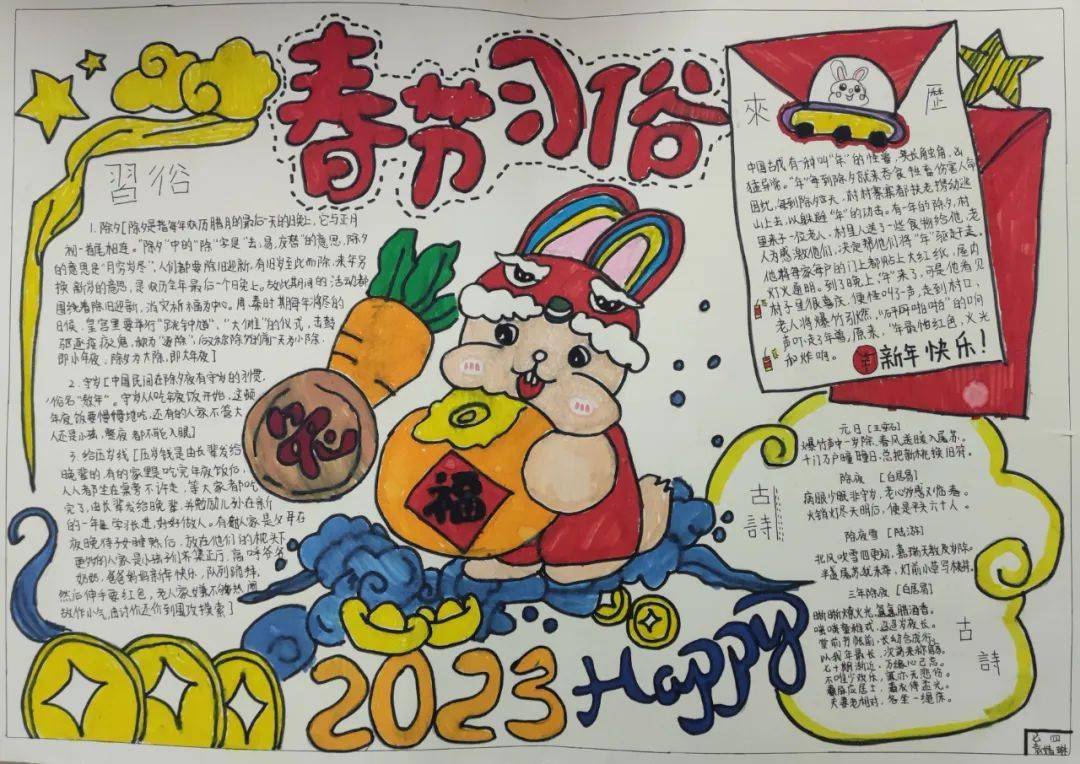 春节习俗
習俗
1. 除夕[除夕是指每年农历腊月的最后一天的晚上，它与正月
初一首尾相连。“除夕”中的“除”字是“去；易；交替”的意思，除夕
的意思是“月穷岁尽”，人们都要除旧迎新，有旧岁至此而除，来年另
换新岁的意思，是农历全年最后一个晚上。故此期间的活动都
围绕着除旧迎新，消灾祈福为中心。周、秦时期每年将尽的
日候，皇宫里要举行“大傩”的仪式，击鼓
驱逐疫疠之鬼，称为“逐除”，后又称除夕的前一天为小除，
即小年夜，除夕为大除，即大年夜]
2. 守岁[中国民间在除夕夜有守岁的习惯，
俗名“熬年”。守岁从吃年夜饭开始，这顿
年夜饭要慢慢地吃，还有的人家不管大
人还是小孩，整夜都不能入眠]
3. 给压岁钱[压岁钱是由长辈发给
晚辈的，有的家里是吃完年夜饭后，
人人都坐在桌旁不许走，等大家都吃
完了，由长辈发给晚辈，并勉励儿孙在新
的一年里学习长进，好好做人。有的人家是父母在
夜晚待子女睡熟后，放在他们的枕头下
更多的人家是小孩子们齐集正厅，高呼爷爷
奶奶、爸爸妈妈新年快乐，列队跪拜，
然后伸手要红包，老人家
故作小气，由讨价还价到围攻摸索]
福
2023
Happy
來歷
中国古代有一种叫“年”的怪兽，头长触角，凶
猛异常。“年”每到除夕就来吞食牲畜伤害人命
因此，每到除夕这天，村村寨寨都扶老携幼逃
山上去，以躲避“年”的伤害。有一年的除夕，村
里来了一位老人，村里人送了一些食物给他，老
人为感激他们，决定帮他们将“年”驱赶走。
他将每家每户的门上都贴上大红纸，屋内
灯火通明。到了晚上，“年”来了，可是他看见
村子里很喜庆，便怪叫一声，走到村口，
老人将爆竹引燃，“砰砰啪啪”的响
声吓走了年兽，原来，“年”最怕红色，火光
和炸响。
新年快乐！
古詩
元日[王安石]
爆竹声中一岁除，春风送暖入屠苏。
千门万户曈曈日，总把新桃换旧符。
除夜 [白居易]
病眼少眠非守岁，老心多感又临春。
火销灯尽天明后，便是平头六十人。
除夜雪 [陆游]
北风吹雪四更初，嘉瑞天教及岁除。
半盏屠苏犹未举，灯前小草写桃符。
古詩
三年除夜 [白居易]
晰晰燎火光，氲氲腊酒香。
嗤嗤童稚戏，迢迢岁夜长。
堂前书帐前，长幼合成行。
以我年最长，次第来称觞。
七十期渐近，万缘心已忘。
不唯少欢乐，兼亦无悲伤。
素屏应居士，青衣侍孟光。
夫妻老相对，各坐一绳床。